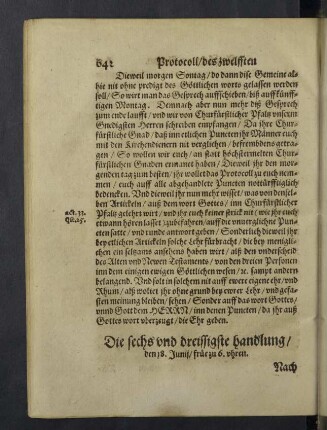 642 Protocoll/ des zwelfften
Dieweil morgen Sontag/ do dann dise Gemeine al-
hie nit ohne predigt des Göttlichen worts gelassen werden
soll/ So wirt man das Gesprech auffschieben/ biß auff künff-
tigen Montag. Demnach aber nun mehr diß Gesprech
zum ende laufft/ vnd wir von Churfürstlicher Pfaltz vnserm
Gnedigsten Herren schreiben empfangen/ Da ihre Chur-
fürstliche Gnad/ daß in etlichen Puncten ihr Männer euch
mit den Kirchendienern nit verglichen/ befrembdens getra-
gen/ So wollen wir euch/ an statt höchstermelter Chur-
fürstlichen Gnaden ermanet haben/ Dieweil ihr den mor-
genden tag zum besten/ ihr wollet das Protocoll zu euch nem-
men/ euch auff alle abgehandelte Puncten notturfftiglich
bedencken. Vnd dieweil ihr nun mehr wisset/ was von densel-
ben Artickeln/ auß dem wort Gottes/ inn Churfürstlicher
act. 22.
Pfaltz gelehrt wirt/ vnd ihr euch feiner strick mit/ wie ihr euch
qu. 25.
etwann hören lasset zuuerfahren/ auff die vnuerglichne Punc-
ten satte/ vnd runde antwort geben/ Sonderlich dieweil ihr
bey etlichen Artickeln solche Lehr fürbracht/ die bey menigli-
chen ein seltzams ansehens haben wirt/ alß den vnderscheid
des Alten vnd Newen Testaments/ von den dreien Personen
inn dem einigen ewigen Göttlichen wesen/ ꝛc. sampt andern
belangend. Vnd solt in solchem nit auff ewere eigene ehr/ vnd
Rhum/ alß woltet ihr ohne grund bey ewrer Lehr/ vnd gefas-
sten meinung bleiben/ sehen/ Sonder auff das wort Gottes/
vnnd Gott dem HERRN/ inn denen Puncten/ da ihr auß
Gottes wort vberzeugt/ die Ehr geben.
Die sechs vnd dreissigste handlung/
den 18. Junij/ frü zu 6. vhren.
Nach